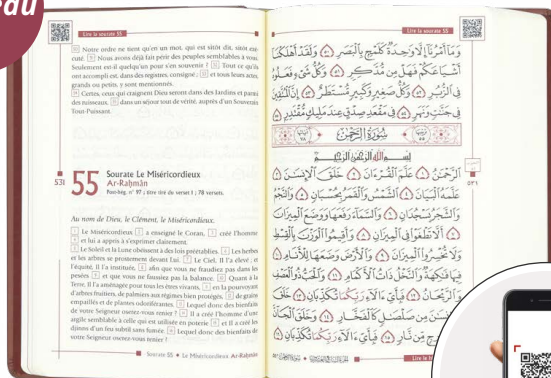 Lire la sourate 55
50 Notre ordre ne tient qu'en un mot, qui est sitôt dit, sitôt exé-
cuté. 51 Nous avons déjà fait périr des peuples semblables à vous.
Seulement est-il quelqu'un pour s'en souvenir ? 52 Tout ce qu'ils
ont accompli est, dans des registres, consigné ; 53 et tous leurs actes,
grands ou petits, y sont mentionnés.
54 Certes, ceux qui craignent Dieu seront dans des Jardins et parmi
des ruisseaux, 55 dans un séjour tout de vérité, auprès d'un Souverain
Tout-Puissant.
531
55 Sourate Le Miséricordieux
Ar-Raḥmân
Post-hég. n° 97 ; titre tiré du verset 1 ; 78 versets.
Au nom de Dieu, le Clément, le Miséricordieux.
1 Le Miséricordieux 2 a enseigné le Coran, 3 créé l'homme
4 et lui a appris à s'exprimer clairement.
5 Le Soleil et la Lune obéissent à des lois préétablies. 6 Les herbes
et les arbres se prosternent devant Lui. 7 Le Ciel, Il l'a élevé ; et
l'équité, Il l'a instituée, 8 afin que vous ne fraudiez pas dans les
pesées 9 et que vous ne faussiez pas la balance. 10 Quant à la
Terre, Il l'a aménagée pour tous les êtres vivants, 11 en la pourvoyant
d'arbres fruitiers, de palmiers aux régimes bien protégés, 12 de grains
empaillés et de plantes odoriférantes. 13 Lequel donc des bienfaits
de votre Seigneur oserez-vous renier ? 14 Il a créé l'homme d'une
argile semblable à celle qui est utilisée en poterie 15 et Il a créé les
djinns d'un feu subtil sans fumée. 16 Lequel donc des bienfaits de
votre Seigneur oserez-vous renier ?
Sourate 55 • Le Miséricordieux Ar-Raḥmân
Lire la sourate 55
وَمَآ أَمْرُنَآ إِلَّا وَٰحِدَةٌ كَلَمْحٍۭ بِٱلْبَصَرِ ۝ وَلَقَدْ أَهْلَكْنَآ
أَشْيَاعَكُمْ فَهَلْ مِن مُّدَّكِرٍ ۝ وَكُلُّ شَىْءٍ فَعَلُوهُ
فِى ٱلزُّبُرِ ۝ وَكُلُّ صَغِيرٍ وَكَبِيرٍ مُّسْتَطَرٌ ۝ إِنَّ ٱلْمُتَّقِينَ
فِى جَنَّٰتٍ وَنَهَرٍ ۝ فِى مَقْعَدِ صِدْقٍ عِندَ مَلِيكٍ مُّقْتَدِرٍۭ ۝
سُورَةُ الرَّحْمَٰن
بِسْمِ ٱللَّهِ ٱلرَّحْمَٰنِ ٱلرَّحِيمِ
ٱلرَّحْمَٰنُ ۝ عَلَّمَ ٱلْقُرْءَانَ ۝ خَلَقَ ٱلْإِنسَٰنَ ۝
عَلَّمَهُ ٱلْبَيَانَ ۝ ٱلشَّمْسُ وَٱلْقَمَرُ بِحُسْبَانٍ ۝ وَٱلنَّجْمُ
وَٱلشَّجَرُ يَسْجُدَانِ ۝ وَٱلسَّمَآءَ رَفَعَهَا وَوَضَعَ ٱلْمِيزَانَ
۝ أَلَّا تَطْغَوْا۟ فِى ٱلْمِيزَانِ ۝ وَأَقِيمُوا۟ ٱلْوَزْنَ بِٱلْقِسْطِ
وَلَا تُخْسِرُوا۟ ٱلْمِيزَانَ ۝ وَٱلْأَرْضَ وَضَعَهَا لِلْأَنَامِ ۝
فِيهَا فَٰكِهَةٌ وَٱلنَّخْلُ ذَاتُ ٱلْأَكْمَامِ ۝ وَٱلْحَبُّ ذُو ٱلْعَصْفِ
وَٱلرَّيْحَانُ ۝ فَبِأَىِّ ءَالَآءِ رَبِّكُمَا تُكَذِّبَانِ ۝ خَلَقَ
ٱلْإِنسَٰنَ مِن صَلْصَٰلٍ كَٱلْفَخَّارِ ۝ وَخَلَقَ ٱلْجَآنَّ
مِن نَّارٍ ۝ فَبِأَىِّ ءَالَآءِ رَبِّكُمَا تُكَذِّبَانِ ۝
٥٣١